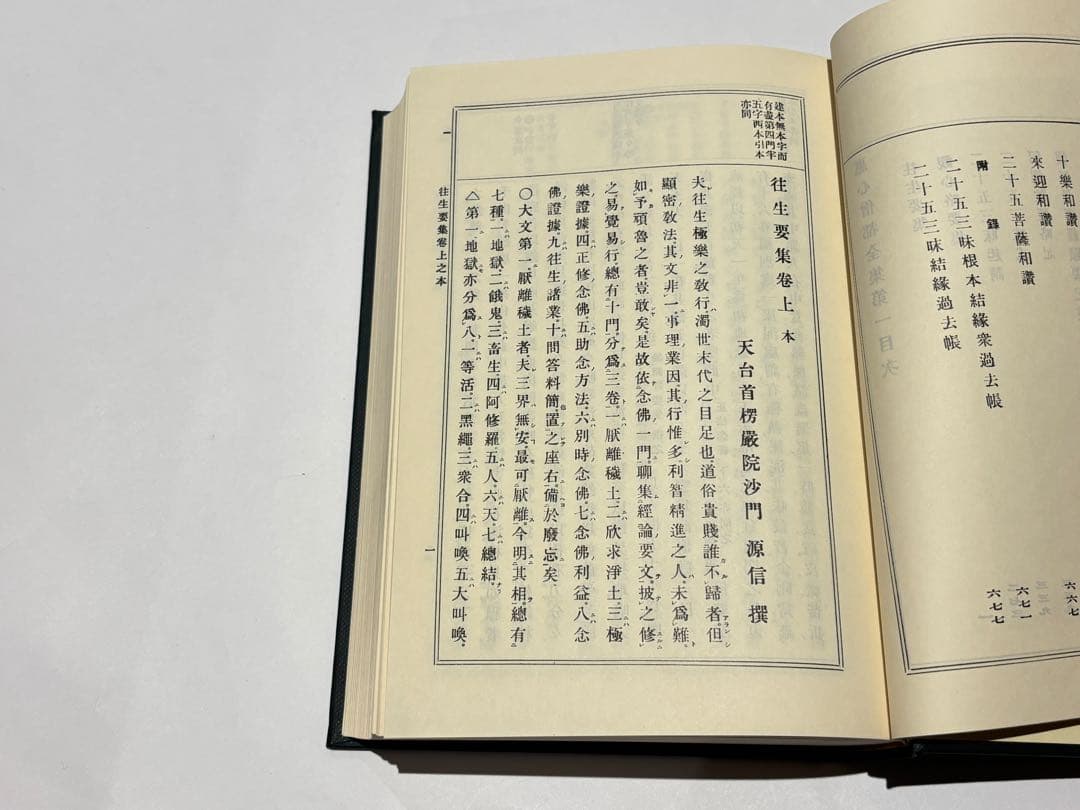 十樂和讃
來迎和讃
二十五菩薩和讃
附錄
二十五三昧根本結緣衆過去帳
二十五三昧結緣過去帳
六六七
六七一
六七七
建本無本字而
有盡第四門半
五字西本引本
亦同
往生要集卷上 本
天台首楞嚴院沙門 源信 撰
夫往生極樂之敎行、濁世末代之目足也。道俗貴賤、誰不歸者。但
顯密敎法、其文非一。事理業因、其行惟多。利智精進之人、未爲難。
如予頑魯之者、豈敢矣。是故依念佛一門、聊集經論要文。披之修
之、易覺易行。總有十門、分爲三卷。一厭離穢土。二欣求淨土。三極
樂證據。四正修念佛。五助念方法。六別時念佛。七念佛利益。八念
佛證據。九往生諸業。十問答料簡。置之座右、備於廢忘矣。
○大文第一厭離穢土者、夫三界無安、最可厭離。今明其相、總有
七種。一地獄。二餓鬼。三畜生。四阿修羅。五人。六天。七總結。
△第一地獄亦分爲八。一等活。二黑繩。三衆合。四叫喚。五大叫喚。
往生要集卷上之本
一